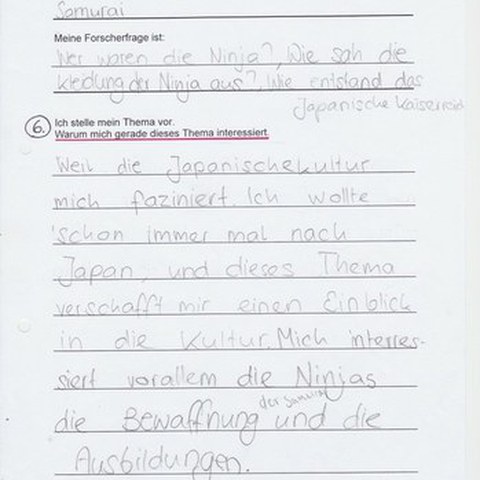 Samurai
Meine Forscherfrage ist:
Wer waren die Ninja?, Wie sah die
kledung der Ninja aus?, Wie entstand das
Japanische Kaiserreich
6.
Ich stelle mein Thema vor.
Warum mich gerade dieses Thema interessiert.
Weil die Japanischekultur
mich faziniert. Ich wollte
schon immer mal nach
Japan, und dieses Thema
verschafft mir einen Einblick
in die Kultur. Mich interres-
siert vorallem die Ninjas
der Samurai
die Bewaffnung und die
Ausbildungen.